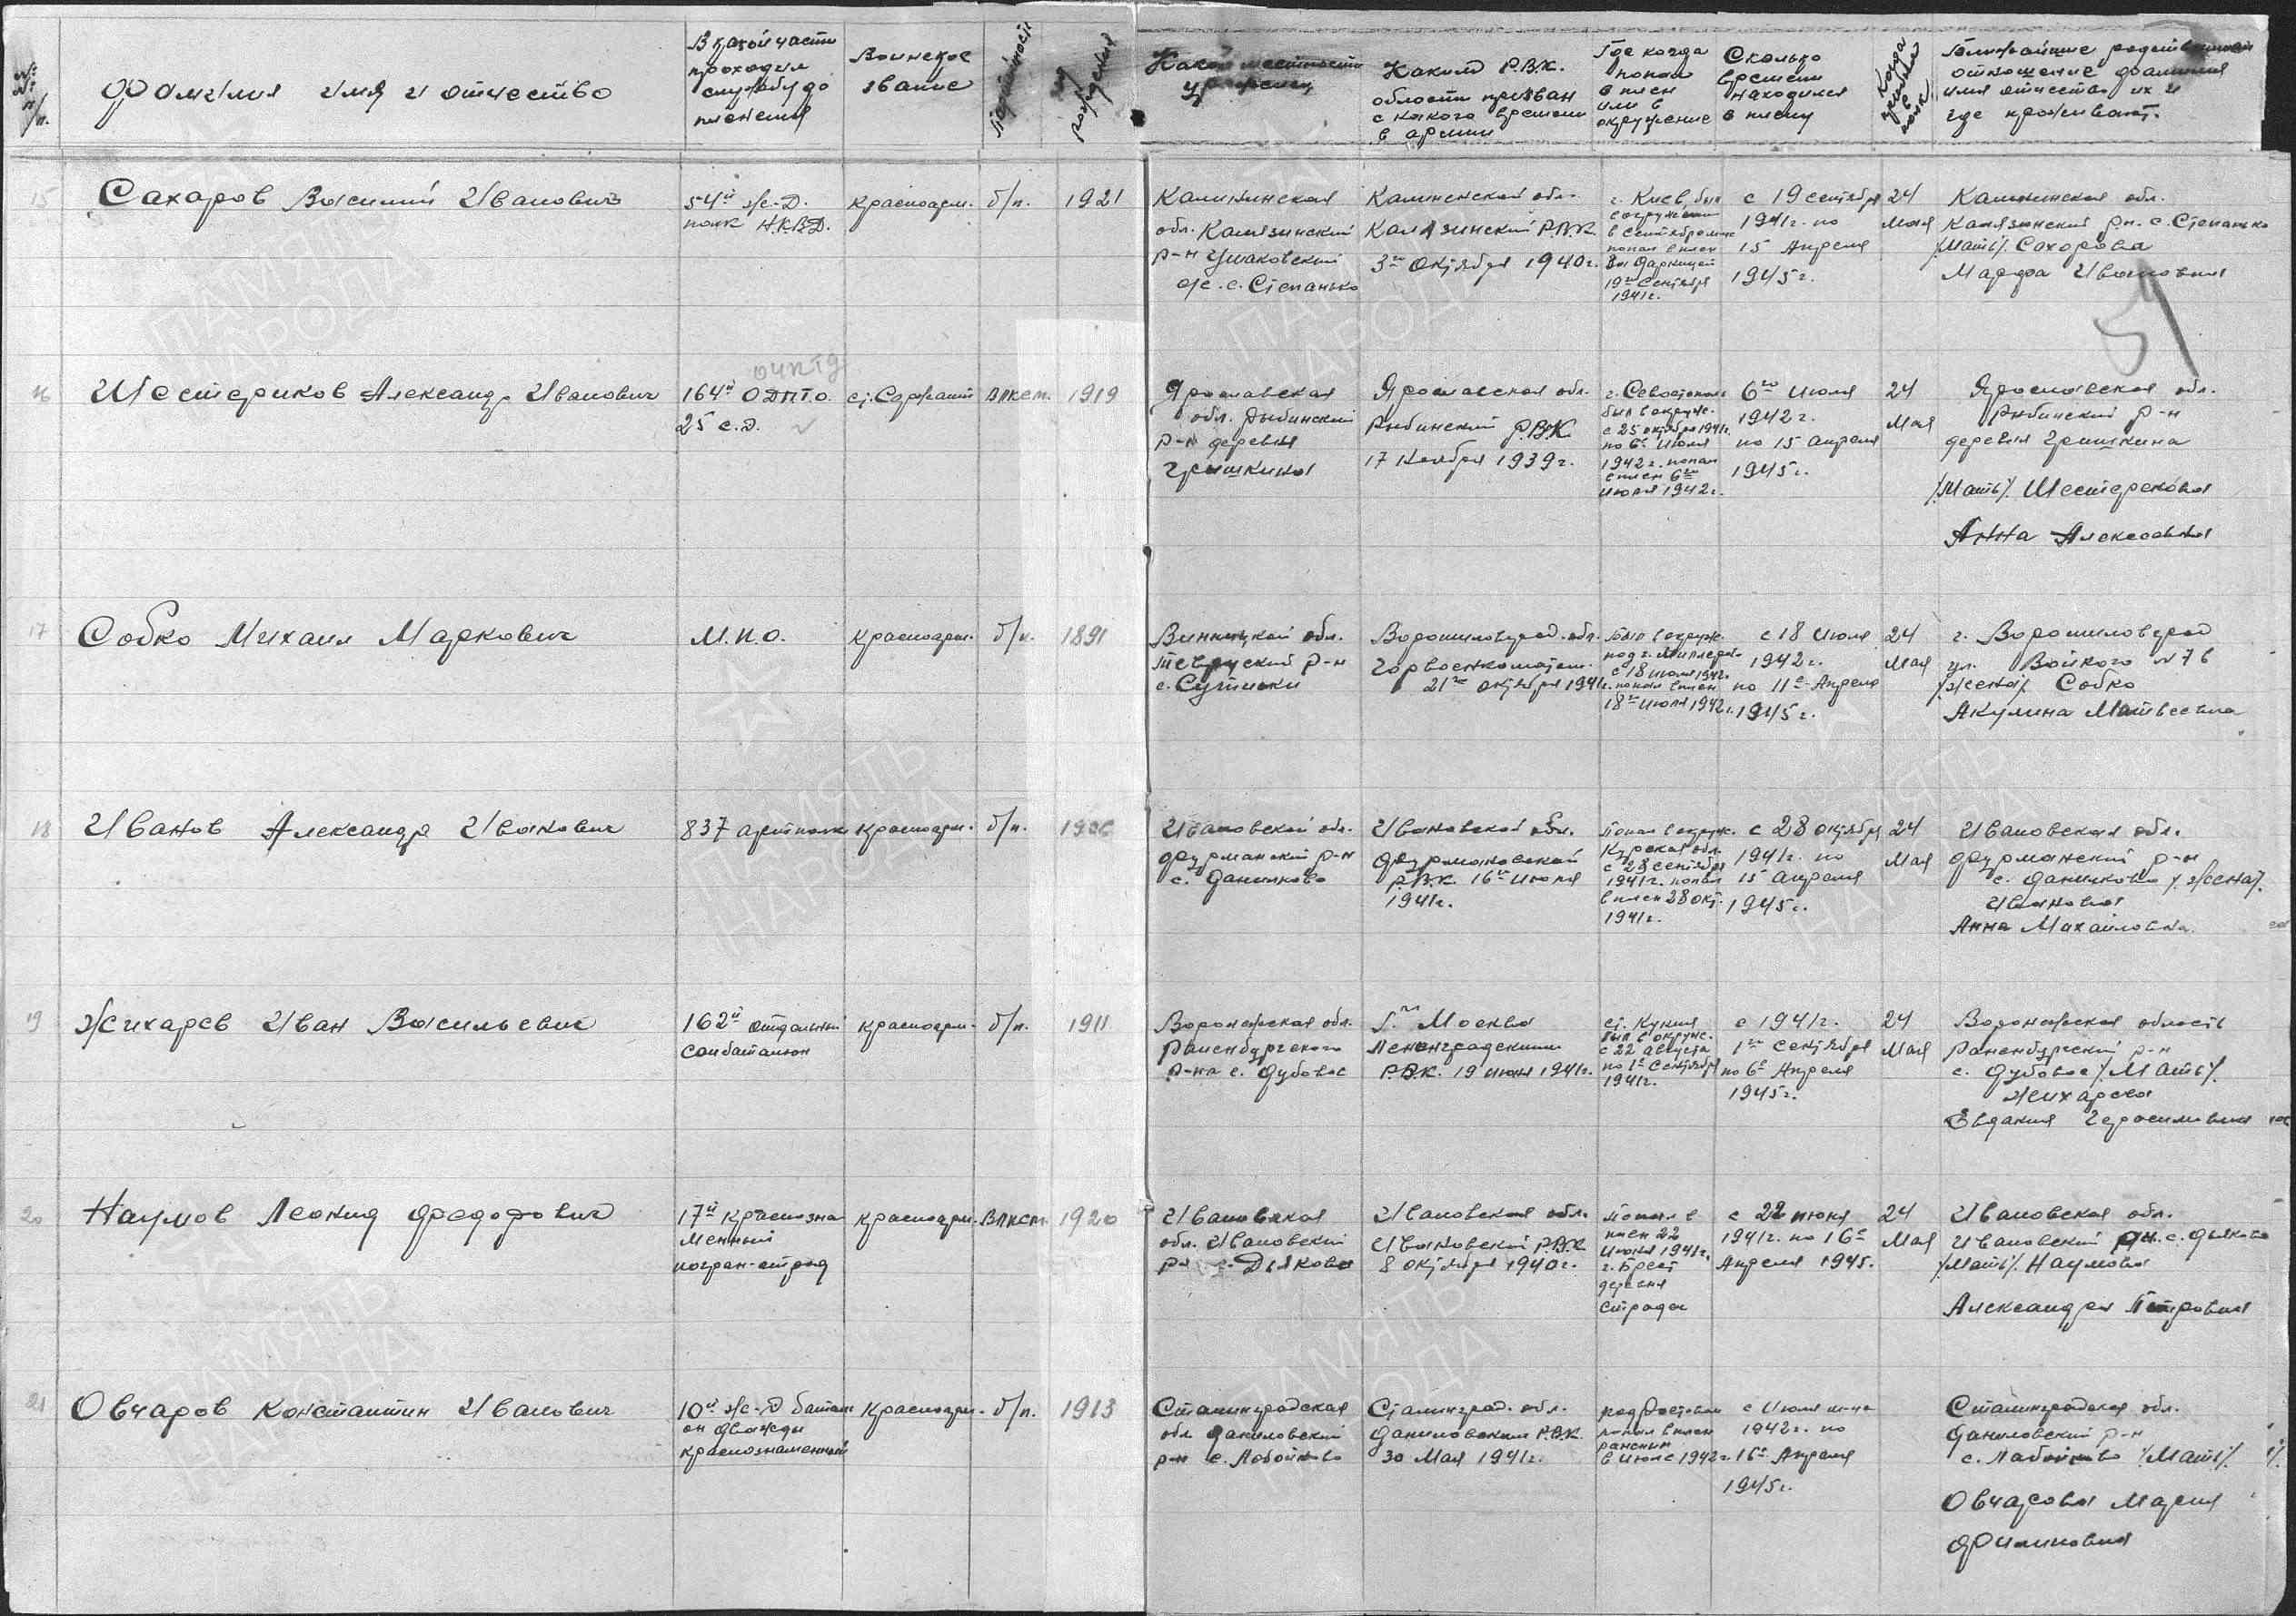 №№ п/п.
Фамилия имя и отчество
В какой части
проходил
службу до
пленения
Воинское
звание
Партийность
год рождения
Какой местности
уроженец
Каким Р.В.К.
области призван
с какого времени
в армии
Где когда
попал
в плен
или в
окружение
Сколько
времени
находился
в плену
Когда
прибыл
в
полк
Ближайшие родственники
отношение фамилия
имя отчество их и
где проживают.
15
Сахаров Василий Иванович
54й ж.-Д.
полк Н.К.В.Д.
красноарм.
б/п.
1921
Калининская
обл. Калязинский
р-н Ушаковский
с/с. с. Степанько
Калиненской обл.
Калязинский Р.В.К.
3го Октября 1940г.
г. Киев, был
в окружении
в сентябре м-це
попал в плен
ст. Дарницей
19го Сентября
1941г.
с 19 сентября
1941г. по
15 Апреля
1945г.
24
мая
Калининская обл.
Калязинский р-н. с. Степанько
/Мать/. Сахарова
Марфа Ивановна
16
Шестериков Александр Иванович
ОЧПТД
164й ОДПТО.
25 с.д.
ст. Сержант
ВЛКСМ.
1919
Ярославская
обл. Рыбинский
р-н деревня
Гришкина
Ярославская обл.
Рыбинский Р.В.К
17 Ноября 1939г.
г. Севастополь
был в окруж.
с 25 октября 1941г.
по 6е Июля
1942г. попал
в плен 6го
июля 1942г.
6го Июля
1942г.
по 15 апреля
1945г.
24
Мая
Ярославская обл.
Рыбинский р-н
деревня Гришкина
/Мать/. Шестерекова
Анна Алексеевна
17
Собко Михаил Маркович
М.П.О.
красноарм.
б/п.
1891
Винницкой обл.
р-н
с. Сутиски
Ворошиловград. обл.
Горвоенкоматом
21го октября 1941г.
Был в окруж.
под г. Миллерово
с 18 июля 1942г.
попал в плен
18го Июля 1942г.
с 18 Июля
1942г.
по 11е Апреля
1945г.
24
Мая
г. Ворошиловград
ул. Войкого №76
/жена/. Собко
Акулина Матвеевна
18
Иванов Александр Иванович
837 артполк
Красноарм.
б/п.
1906
Ивановской обл.
Фурманский р-н
с. Данилково
Ивановской обл.
Фурмановской
Р.В.К. 16го Июля
1941г.
Попал в окруж.
Курская обл.
с 28 сентября
1941г. попал
в плен 28 окт.
1941г.
с 28 октября
1941г. по
15 апреля
1945г.
24
Мая
Ивановская обл.
Фурманский р-н
с. Данилково /. жена/.
Иванова
Анна Михайловна
19
Жихарев Иван Васильевич
162й отдельный
санбатальон
красноарм.
б/п.
1911
Воронежская обл.
Раненбургского
р-на с. Дубовое
г. Москва
Ленинградским
Р.В.К. 19 июня 1941г.
ст. Кукия
был в окруж.
с 22 августа
по 1е Сентября
1941г.
с 1941г.
1го Сентября
по 6е Апреля
1945г.
24
Мая
Воронежская область
Раненбургский р-н
с. Дубовое /. Мать/.
Жихарева
Евдакия Герасимовна
20
Наумов Леонид Федорович
17й Краснозна
менный
погран-отряд
красноарм.
ВЛКСМ
1920
Ивановская
обл. Ивановский
рн с. Дьяково
Ивановская обл.
Ивановский Р.В.К.
8 октября 1940г.
Попал в
плен 22
Июня 1941г.
г. Брест
деревня
Страдеч
с 22 июня
1941г. по 16е
Апреля 1945г.
24
Мая
Ивановская обл.
Ивановский рн. с. Дьяково
/Мать/. Наумова
Александра Петровна
21
Овчаров Константин Иванович
10й ж.-Д батали
он дважды
краснознаменный
Красноарм.
б/п.
1913
Сталинградская
обл Даниловский
р-н с. Лобойково
Сталинград. обл.
Даниловским Р.В.К.
30 Мая 1941г.
под Ростовом
попал в плен
раненым
в Июле 1942г.
с Июля м-ца
1942г. по
16е Апреля
1945г.
Сталинградская обл.
Даниловский р-н
с. Лабойково /Мать/.
Овчарова Мария
Филиповна
ПАМЯТЬ
НАРОДА